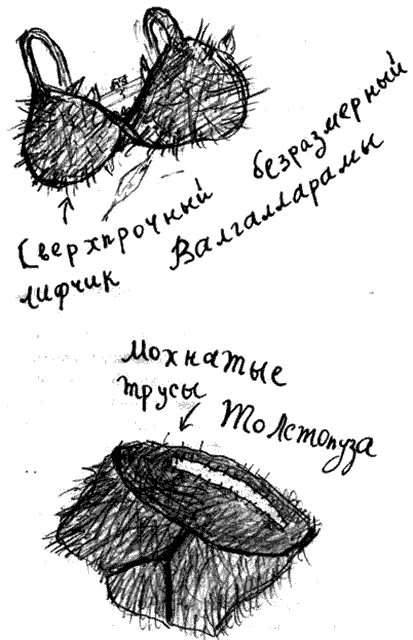 Сверхпрочный безразмерный
лифчик Валгалларамы
мохнатые
трусы Толстопуза